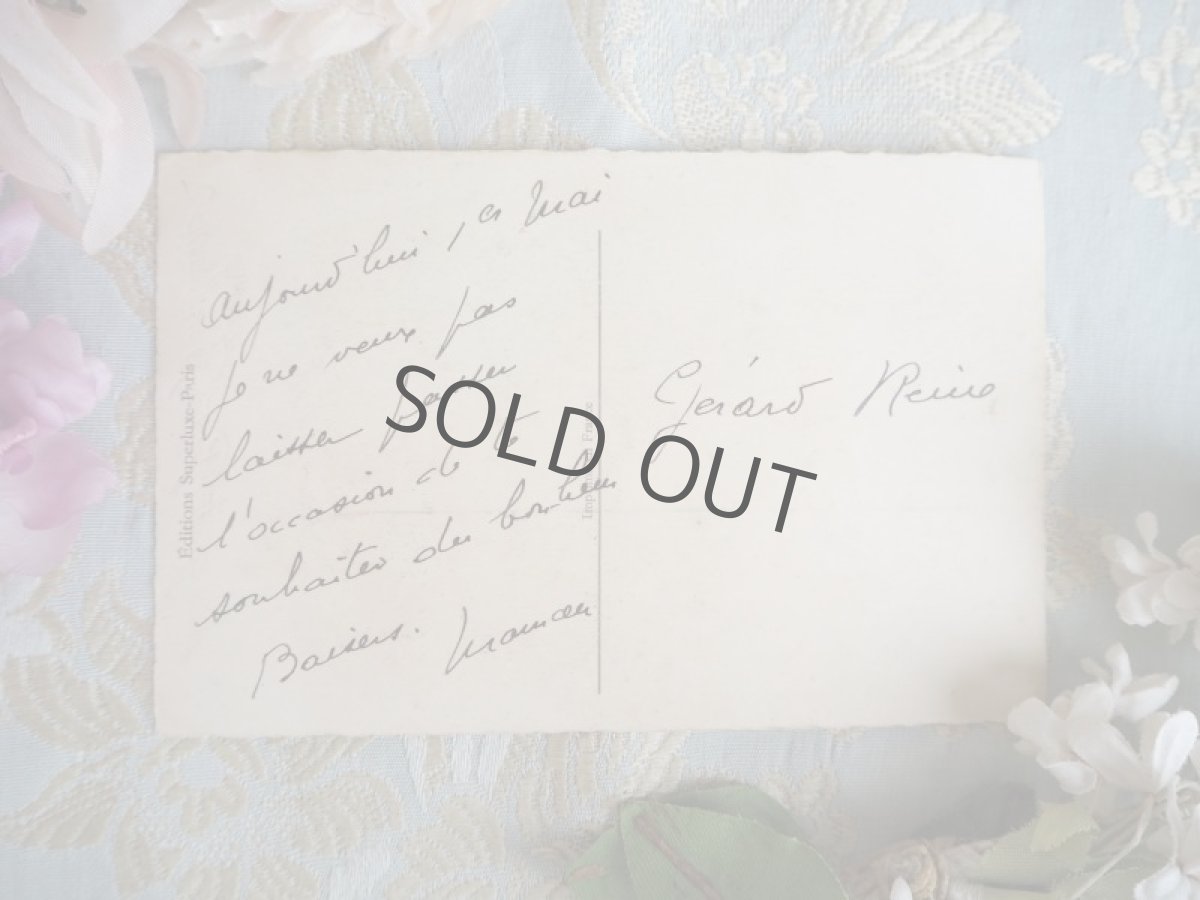 Aujourd'hui, 1er Mai
je ne veux pas
laisser passer
l'occasion de te
souhaiter du bonheur
Baisers. Maman
Gérard Reine
Editions Superluxe-Paris
SOLD OUT